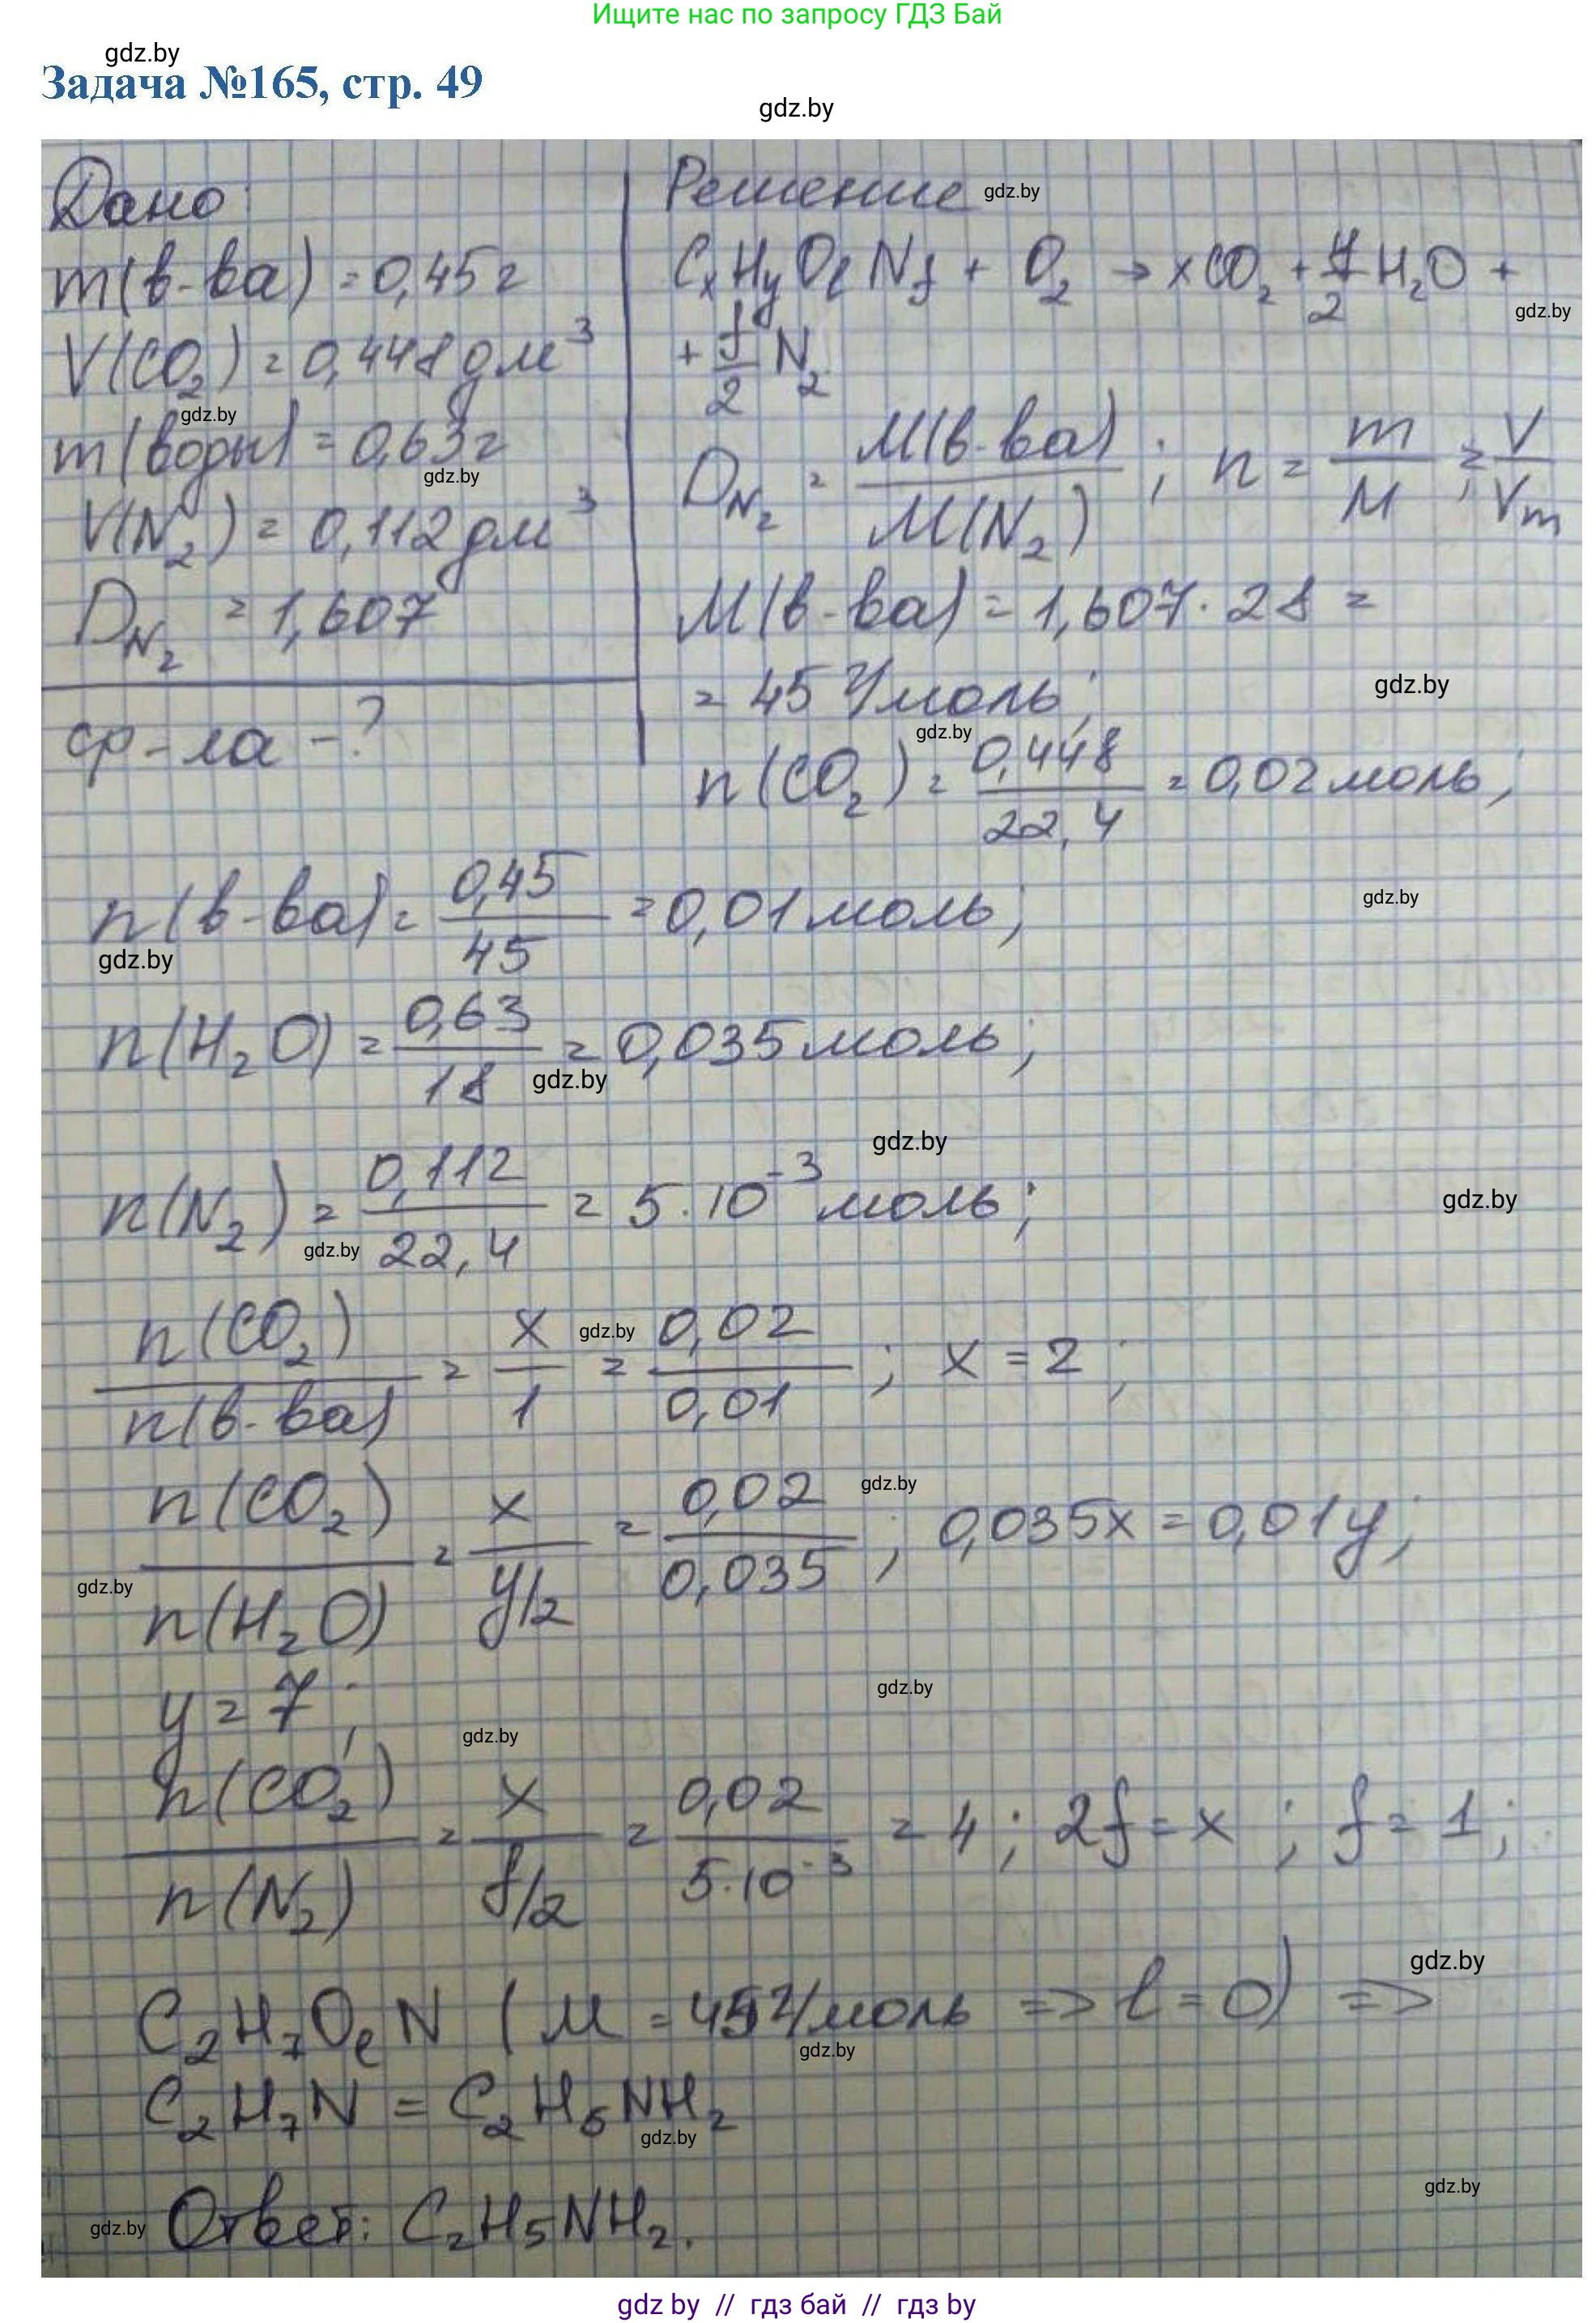 Ищите нас по запросу ГДЗ Бай
gdz.by
Задача №165, стр. 49
gdz.by
Дано:
m(в-ва) = 0,45 г
V(CO₂) = 0,448 дм³
gdz.by
m(воды) = 0,63 г
gdz.by
V(N₂) = 0,112 дм³
D_N₂ = 1,607
ф-ла - ?
Решение gdz.by
CxHyOlNf + O₂ → xCO₂ + y/2 H₂O +
gdz.by
+ f/2 N₂
D_N₂ = M(в-ва)/M(N₂); n = m/M; = V/Vm
M(в-ва) = 1,607 · 28 =
= 45 г/моль;
gdz.by
gdz.by
n(CO₂) = 0,448/22,4 = 0,02 моль;
n(в-ва) = 0,45/45 = 0,01 моль;
gdz.by
gdz.by
n(H₂O) = 0,63/18 = 0,035 моль;
gdz.by
gdz.by
n(N₂) = 0,112/22,4 = 5·10⁻³ моль;
gdz.by
gdz.by
n(CO₂)/n(в-ва) = x/1 = 0,02/0,01; x = 2;
gdz.by
n(CO₂)/n(H₂O) = x/y/2 = 0,02/0,035; 0,035x = 0,01y;
gdz.by
gdz.by
y = 7;
gdz.by
gdz.by
n(CO₂)/n(N₂) = x/f/2 = 0,02/5·10⁻³ = 4; 2f = x; f = 1;
gdz.by
C₂H₇OlN (M = 45 г/моль => l = 0) =>
gdz.by
C₂H₇N = C₂H₅NH₂
gdz.by
gdz.by
gdz.by
Ответ: C₂H₅NH₂.
gdz by // гдз бай // гдз by